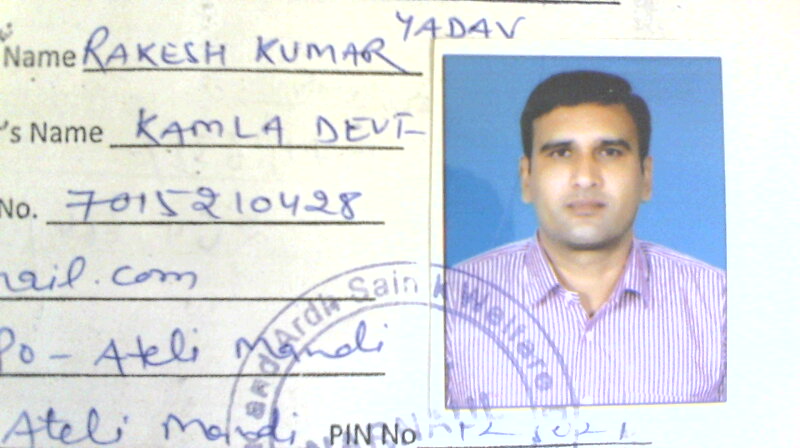 Name RAKESH KUMAR YADAV
's Name KAMLA DEVI
No. 7015210428
mail.com
Po - Ateli Mandi
Ateli Mandi PIN No
and Ardh Sain k Welfare